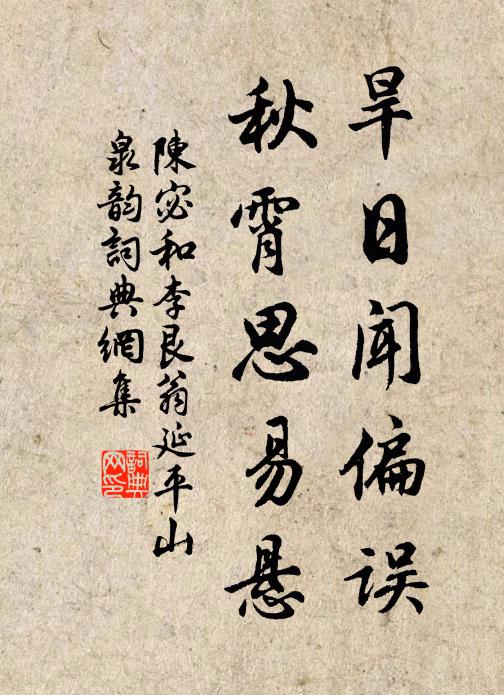 旱日闻偏误
秋霄思易悬
陳宓和李艮翁延平山
泉韵詞典網集
詞典网印